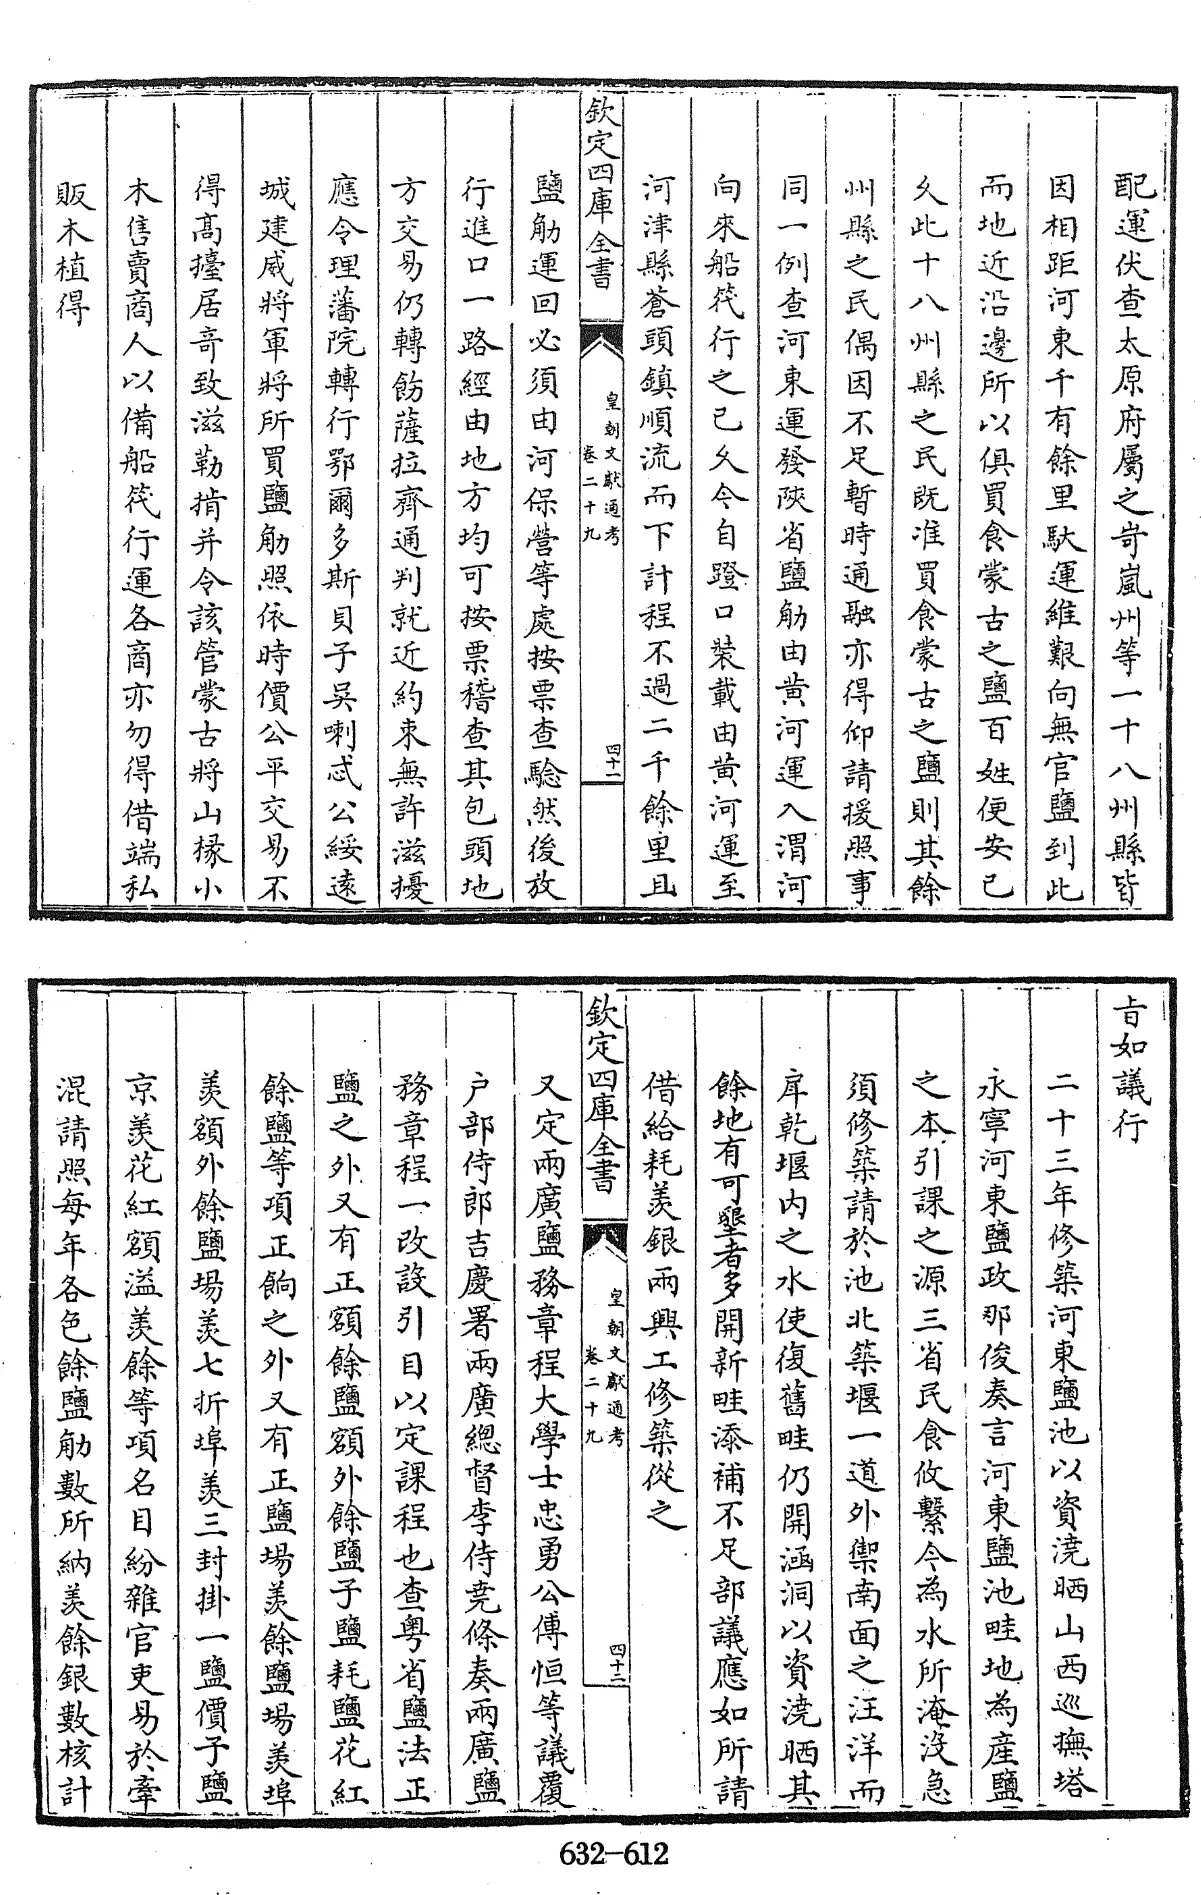 配運伏查太原府屬之岢嵐州等一十八州縣皆
因相距河東千有餘里馱運維艱向無官鹽到此
而地近沿邊所以俱買食蒙古之鹽百姓便安已
久此十八州縣之民既准買食蒙古之鹽則其餘
州縣之民偶因不足暫時通融亦得仰請援照事
同一例查河東運發陝省鹽觔由黄河運入渭河
向來船筏行之已久今自蹬口裝載由黄河運至
河津縣蒼頭鎮順流而下計程不過二千餘里且
欽定四庫全書
皇朝文獻通考
卷二十九
四十一
鹽觔運回必須由河保營等處按票查驗然後放
行進口一路經由地方均可按票稽查其包頭地
方交易仍轉飭薩拉齊通判就近約束無許滋擾
應令理藩院轉行鄂爾多斯貝子吳喇忒公綏遠
城建威將軍將所買鹽觔照依時價公平交易不
得高擡居奇致滋勒掯并令該管蒙古將山椽小
木售賣商人以備船筏行運各商亦勿得借端私
販木植得
旨如議行
二十三年修築河東鹽池以資澆晒山西巡撫塔
永寧河東鹽政那俊奏言河東鹽池畦地為産鹽
之本引課之源三省民食攸繫今為水所淹没急
須修築請於池北築堰一道外禦南面之汪洋而
戽乾堰内之水使復舊畦仍開涵洞以資澆晒其
餘地有可墾者多開新畦添補不足部議應如所請
借給耗羡銀兩興工修築從之
欽定四庫全書
皇朝文獻通考
卷二十九
四十二
又定兩廣鹽務章程大學士忠勇公傅恒等議覆
户部侍郎吉慶署兩廣總督李侍堯條奏兩廣鹽
務章程一改設引目以定課程也查粤省鹽法正
鹽之外又有正額餘鹽額外餘鹽子鹽耗鹽花紅
餘鹽等項正餉之外又有正鹽場羡餘鹽場羡埠
羡額外餘鹽場羡七折埠羡三封掛一鹽價子鹽
京羡花紅額溢羡餘等項名目紛雜官吏易於牽
混請照每年各色餘鹽觔數所納羡餘銀數核計
632-612